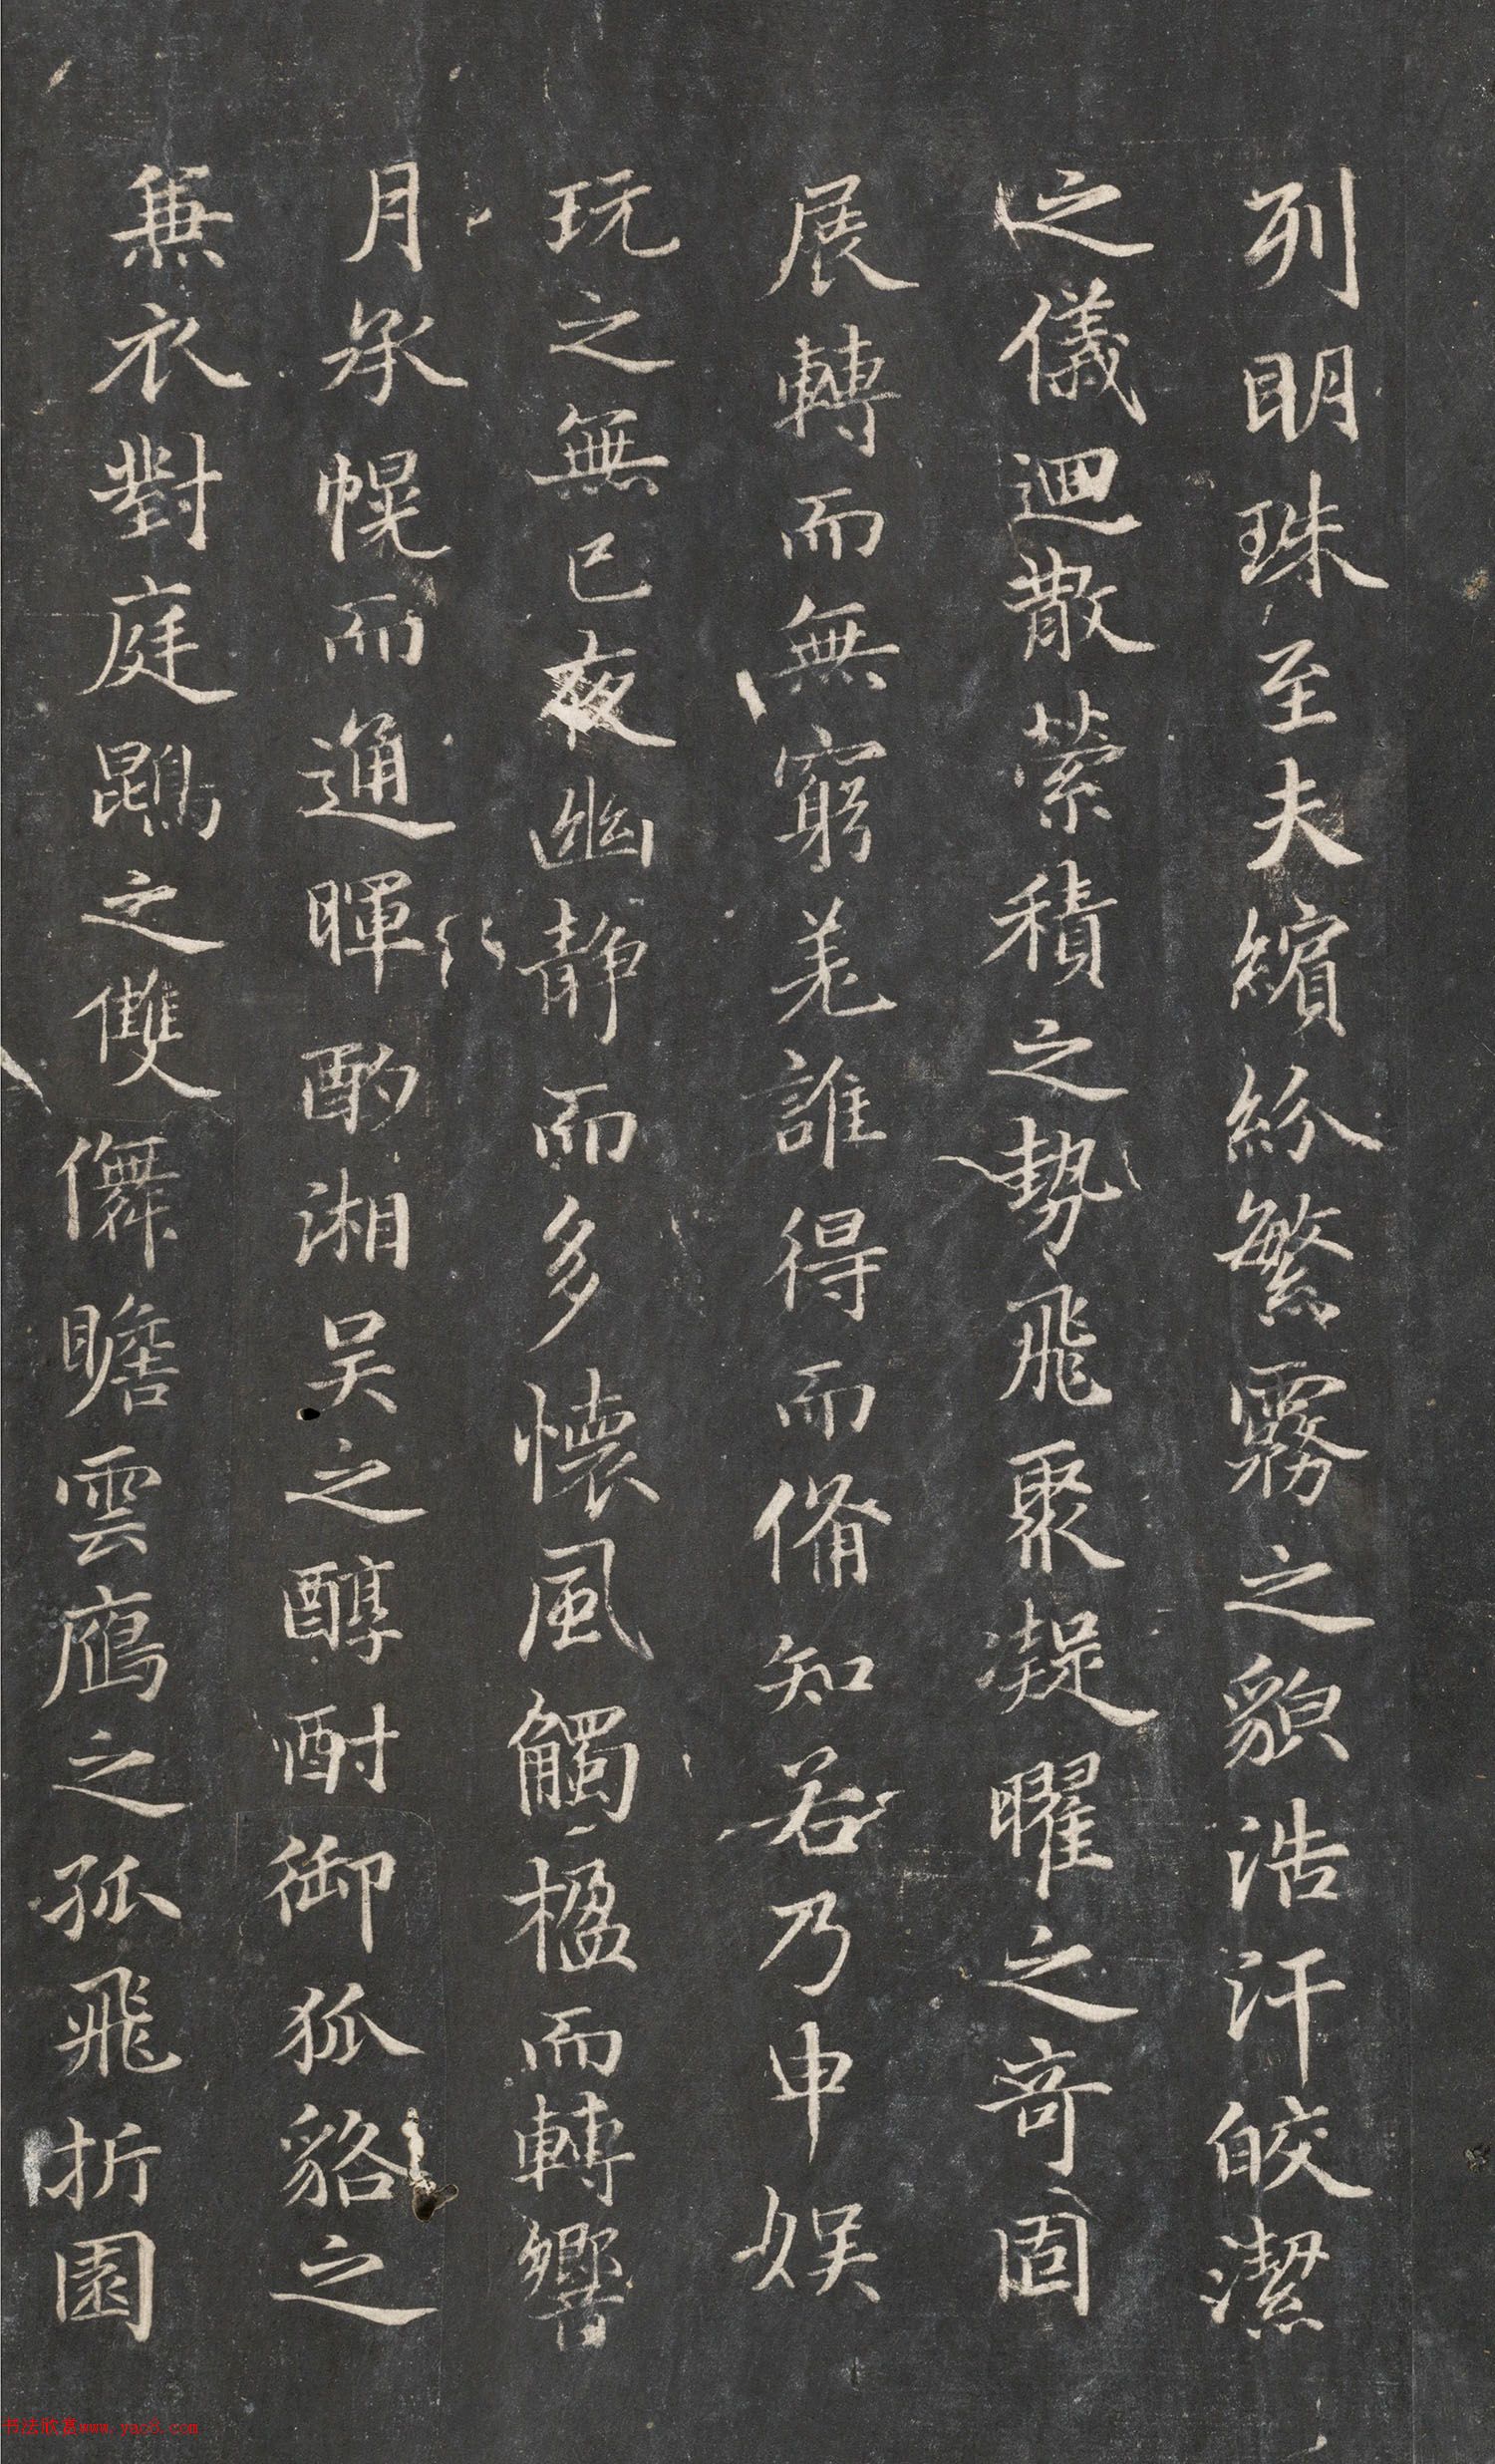 列明珠至夫繽紛繁霧之貌浩汗皎潔
之儀迴散縈積之勢飛聚凝曜之奇固
展轉而無窮羌誰得而備知若乃申娛
玩之無已夜幽静而多懷風觸楹而轉響
月承幌而通暉酌湘吴之醇酎御狐貉之
兼衣對庭鵾之雙儛瞻雲鴈之孤飛折園
书法欣赏www.yac8.com